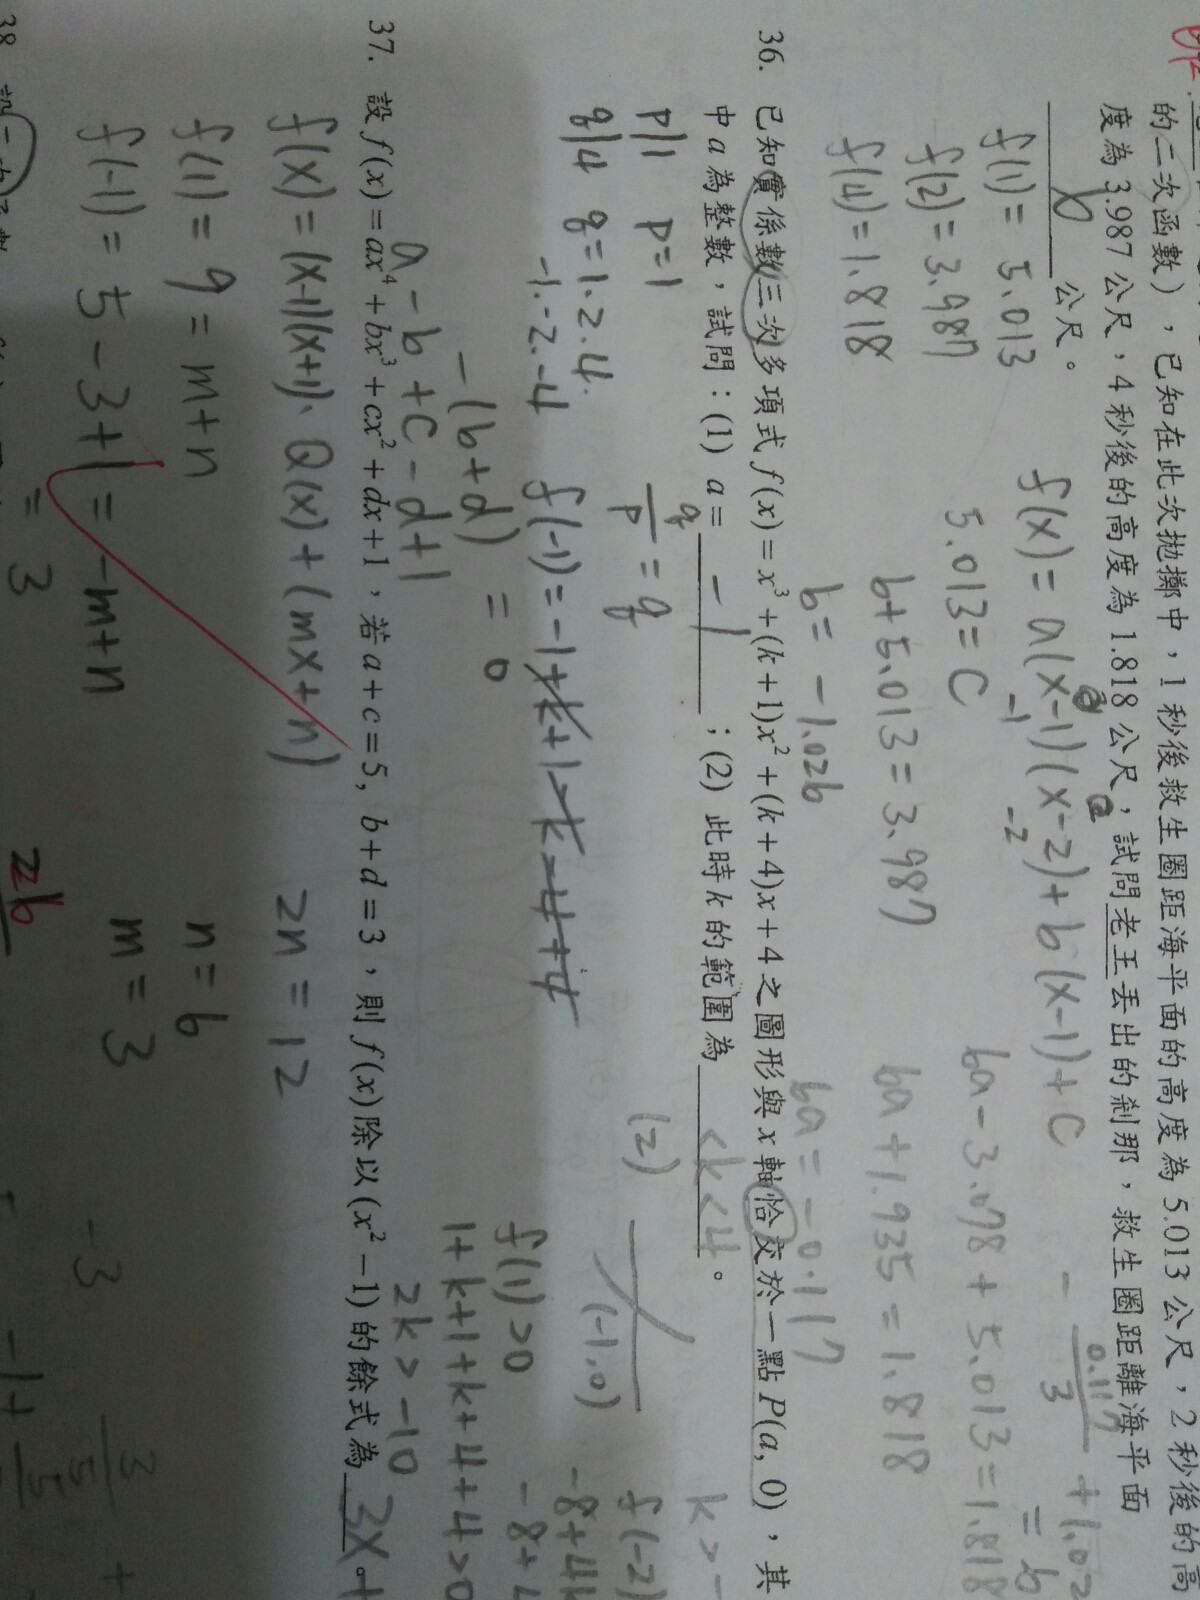 的二次函數），已知在此次拋擲中，1秒後救生圈距海平面的高度為5.013公尺，2秒後的高
度為3.987公尺，4秒後的高度為1.818公尺，試問老王丟出的剎那，救生圈距離海平面
6 公尺。
f(1) = 5.013
f(2) = 3.987
f(4) = 1.818
f(x) = a(x-1)(x-2)+b(x-1)+c
-1 -2
5.013 = c
b+5.013 = 3.987
b = -1.026
6a-3.078+5.013=1.818
6a+1.935=1.818
6a = -0.117
36. 已知實係數三次多項式 f(x)=x³+(k+1)x²+(k+4)x+4之圖形與x軸恰交於一點P(a, 0)，其
中a為整數，試問：(1) a= -1 ；(2) 此時k的範圍為 <k<4 。
p|1 p=1
q|4 q=1.2.4.
-1.-2.-4
q/p = q
f(-1)=-1+k+1-k-4+4
= 0
(2)
(-1,0)
f(1)>0
1+k+1+k+4+4>0
2k>-10
k>-
f(-2)
-8+4k
-(b+d)
a-b+c-d+1
37. 設 f(x)=ax⁴+bx³+cx²+dx+1，若a+c=5, b+d=3，則 f(x)除以(x²-1)的餘式為 3x+
f(x) = (x-1)(x+1)、Q(x)+(mx+n)
f(1) = 9 = m+n
f(-1) = 5-3+1 = -m+n
= 3
2n = 12
n = 6
m = 3
38